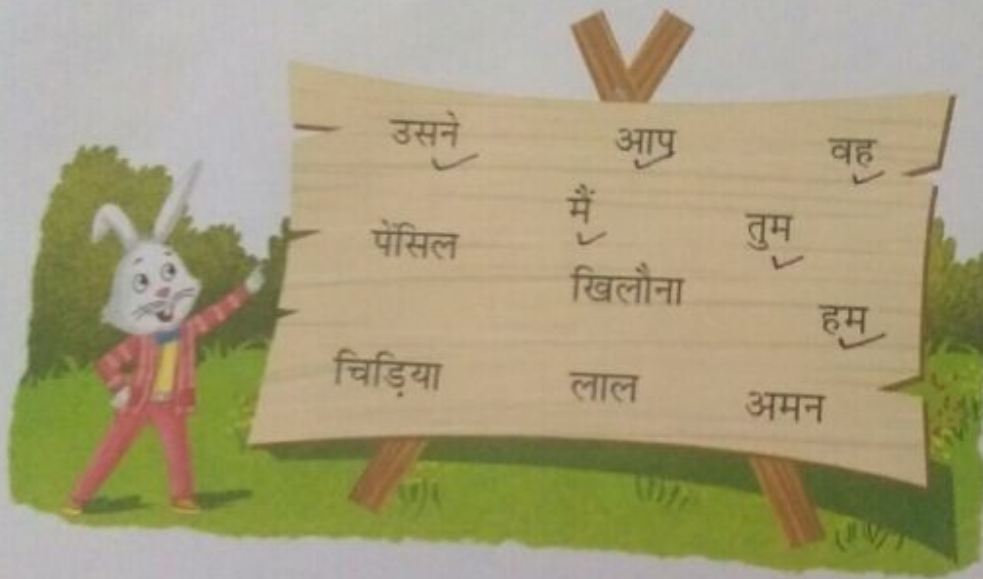 उसने आप वह
पेंसिल मैं तुम
खिलौना
हम
चिड़िया लाल अमन